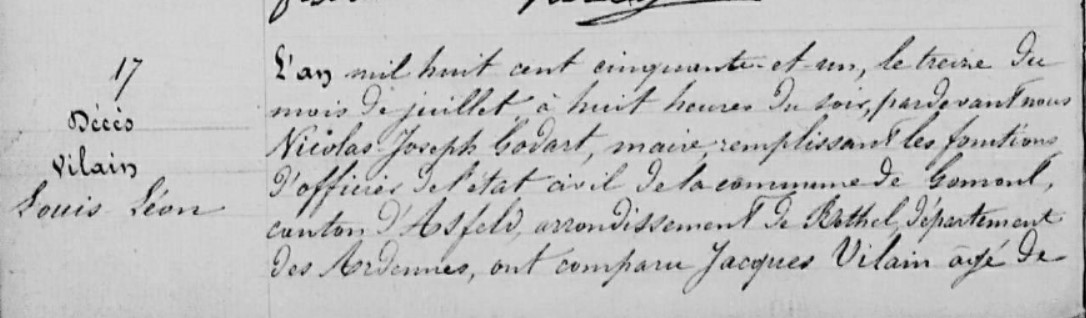 17
Décès
Vilain
Louis Léon
L'an mil huit cent cinquante-et-un, le treize du
mois de juillet à huit heures du soir, pardevant nous
Nicolas Joseph Godart, maire, remplissant les fonctions
d'officier de l'état civil de la commune de Gomont,
canton d'Asfeld, arrondissement de Rethel, département
des Ardennes, ont comparu Jacques Vilain âgé de